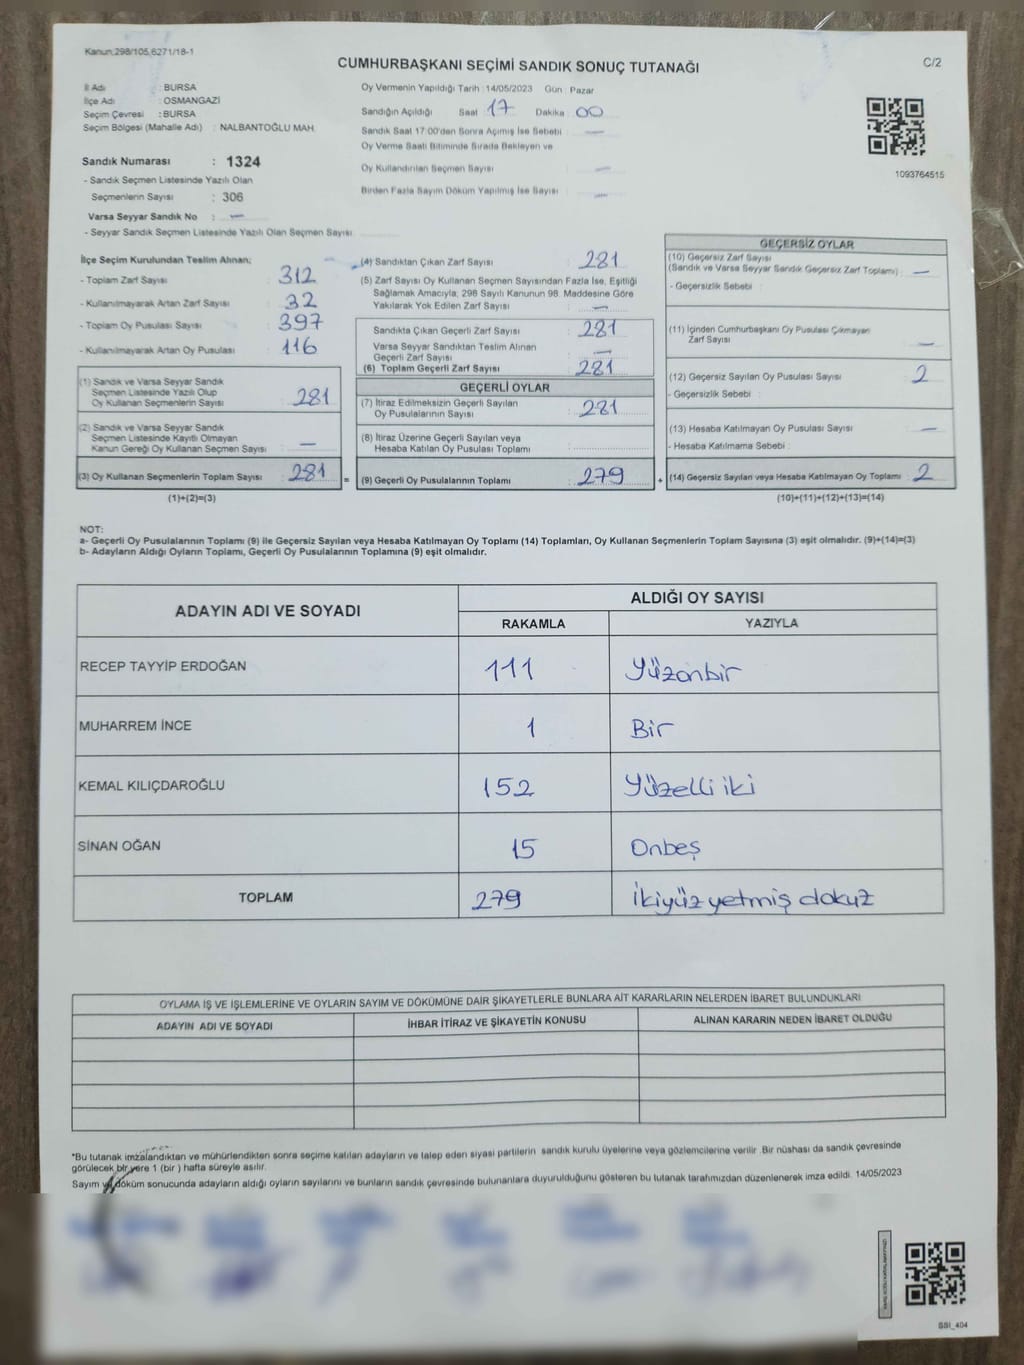 Kanun:298/105,6271/18-1
CUMHURBAŞKANI SEÇİMİ SANDIK SONUÇ TUTANAĞI
C/2
İl Adı : BURSA
İlçe Adı : OSMANGAZİ
Seçim Çevresi : BURSA
Seçim Bölgesi (Mahalle Adı) : NALBANTOĞLU MAH.
Sandık Numarası : 1324
- Sandık Seçmen Listesinde Yazılı Olan
Seçmenlerin Sayısı : 306
Varsa Seyyar Sandık No : —
- Seyyar Sandık Seçmen Listesinde Yazılı Olan Seçmen Sayısı :
Oy Vermenin Yapıldığı Tarih : 14/05/2023 Gün : Pazar
Sandığın Açıldığı Saat 17 Dakika : 00
Sandık Saat 17:00'den Sonra Açılmış İse Sebebi : —
Oy Verme Saati Bitiminde Sırada Bekleyen ve
Oy Kullandırılan Seçmen Sayısı : —
Birden Fazla Sayım Döküm Yapılmış İse Sayısı : —
1093764515
İlçe Seçim Kurulundan Teslim Alınan;
- Toplam Zarf Sayısı : 312
- Kullanılmayarak Artan Zarf Sayısı : 32
- Toplam Oy Pusulası Sayısı : 397
- Kullanılmayarak Artan Oy Pusulası : 116
(1) Sandık ve Varsa Seyyar Sandık
Seçmen Listesinde Yazılı Olup
Oy Kullanan Seçmenlerin Sayısı : 281
(2) Sandık ve Varsa Seyyar Sandık
Seçmen Listesinde Kayıtlı Olmayan
Kanun Gereği Oy Kullanan Seçmen Sayısı : —
(3) Oy Kullanan Seçmenlerin Toplam Sayısı : 281
(1)+(2)=(3)
(4) Sandıktan Çıkan Zarf Sayısı : 281
(5) Zarf Sayısı Oy Kullanan Seçmen Sayısından Fazla İse, Eşitliği
Sağlamak Amacıyla; 298 Sayılı Kanunun 98. Maddesine Göre
Yakılarak Yok Edilen Zarf Sayısı : —
Sandıkta Çıkan Geçerli Zarf Sayısı : 281
Varsa Seyyar Sandıktan Teslim Alınan
Geçerli Zarf Sayısı : —
(6) Toplam Geçerli Zarf Sayısı : 281
GEÇERLİ OYLAR
(7) İtiraz Edilmeksizin Geçerli Sayılan
Oy Pusulalarının Sayısı : 281
(8) İtiraz Üzerine Geçerli Sayılan veya
Hesaba Katılan Oy Pusulası Toplamı :
= (9) Geçerli Oy Pusulalarının Toplamı : 279 +
GEÇERSİZ OYLAR
(10) Geçersiz Zarf Sayısı
(Sandık ve Varsa Seyyar Sandık Geçersiz Zarf Toplamı) : —
- Geçersizlik Sebebi :
(11) İçinden Cumhurbaşkanı Oy Pusulası Çıkmayan
Zarf Sayısı : —
(12) Geçersiz Sayılan Oy Pusulası Sayısı : 2
- Geçersizlik Sebebi :
(13) Hesaba Katılmayan Oy Pusulası Sayısı : —
- Hesaba Katılmama Sebebi :
(14) Geçersiz Sayılan veya Hesaba Katılmayan Oy Toplamı : 2
(10)+(11)+(12)+(13)=(14)
NOT:
a- Geçerli Oy Pusulalarının Toplamı (9) ile Geçersiz Sayılan veya Hesaba Katılmayan Oy Toplamı (14) Toplamları, Oy Kullanan Seçmenlerin Toplam Sayısına (3) eşit olmalıdır. (9)+(14)=(3)
b- Adayların Aldığı Oyların Toplamı, Geçerli Oy Pusulalarının Toplamına (9) eşit olmalıdır.
ADAYIN ADI VE SOYADI
ALDIĞI OY SAYISI
RAKAMLA YAZIYLA
RECEP TAYYİP ERDOĞAN 111 Yüzonbir
MUHARREM İNCE 1 Bir
KEMAL KILIÇDAROĞLU 152 Yüzelli iki
SİNAN OĞAN 15 Onbeş
TOPLAM 279 İkiyüz yetmiş dokuz
OYLAMA İŞ VE İŞLEMLERİNE VE OYLARIN SAYIM VE DÖKÜMÜNE DAİR ŞİKAYETLERLE BUNLARA AİT KARARLARIN NELERDEN İBARET BULUNDUKLARI
ADAYIN ADI VE SOYADI İHBAR İTİRAZ VE ŞİKAYETİN KONUSU ALINAN KARARIN NEDEN İBARET OLDUĞU
*Bu tutanak imzalandıktan ve mühürlendikten sonra seçime katılan adayların ve talep eden siyasi partilerin sandık kurulu üyelerine veya gözlemcilerine verilir. Bir nüshası da sandık çevresinde
görülecek bir yere 1 (bir ) hafta süreyle asılır.
Sayım ve döküm sonucunda adayların aldığı oyların sayılarını ve bunların sandık çevresinde bulunanlara duyurulduğunu gösteren bu tutanak tarafımızdan düzenlenerek imza edildi. 14/05/2023
SSI_404